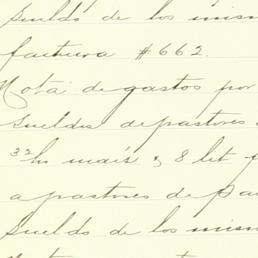 sueldo de los mism
factura #662.
Nota de gastos por
sueldis de pastores
32 hs maís & 8 let
a pastores de pa
sueldo de los mism